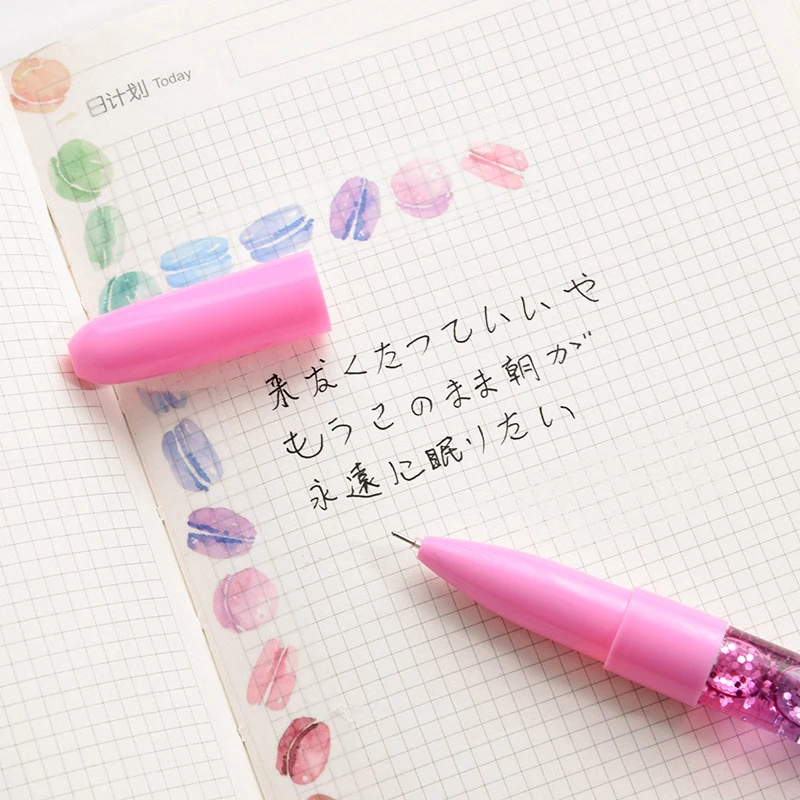 日计划 Today
来なくたっていいや
もうこのまま朝が
永遠に眠りたい